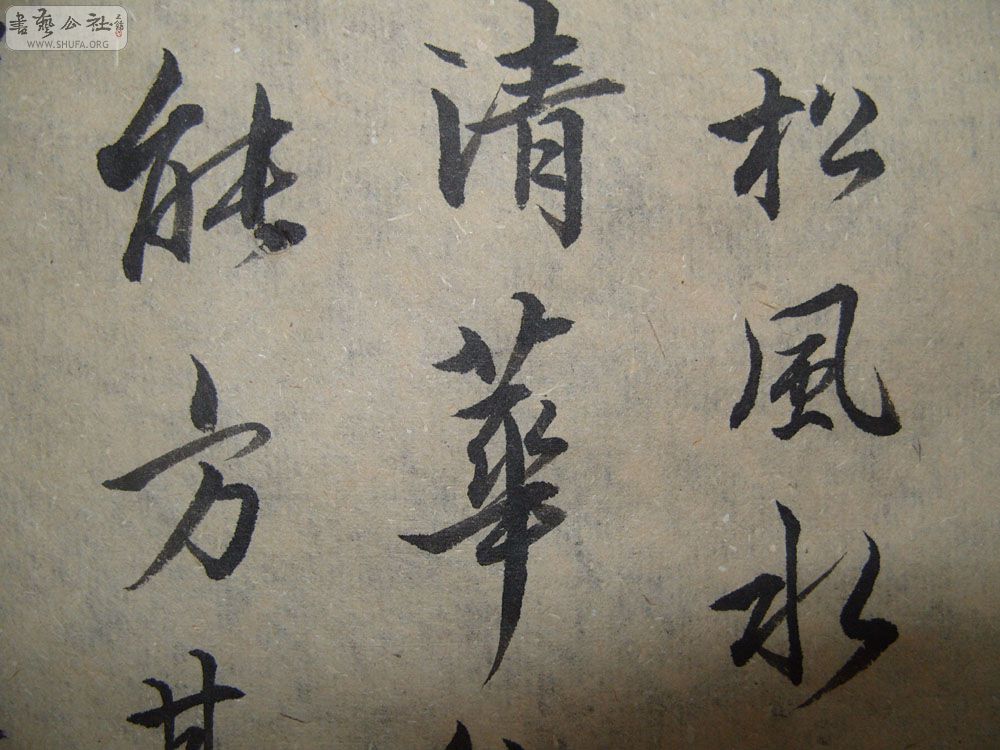 松風水
清華
能方其
書藝公社
WWW.SHUFA.ORG